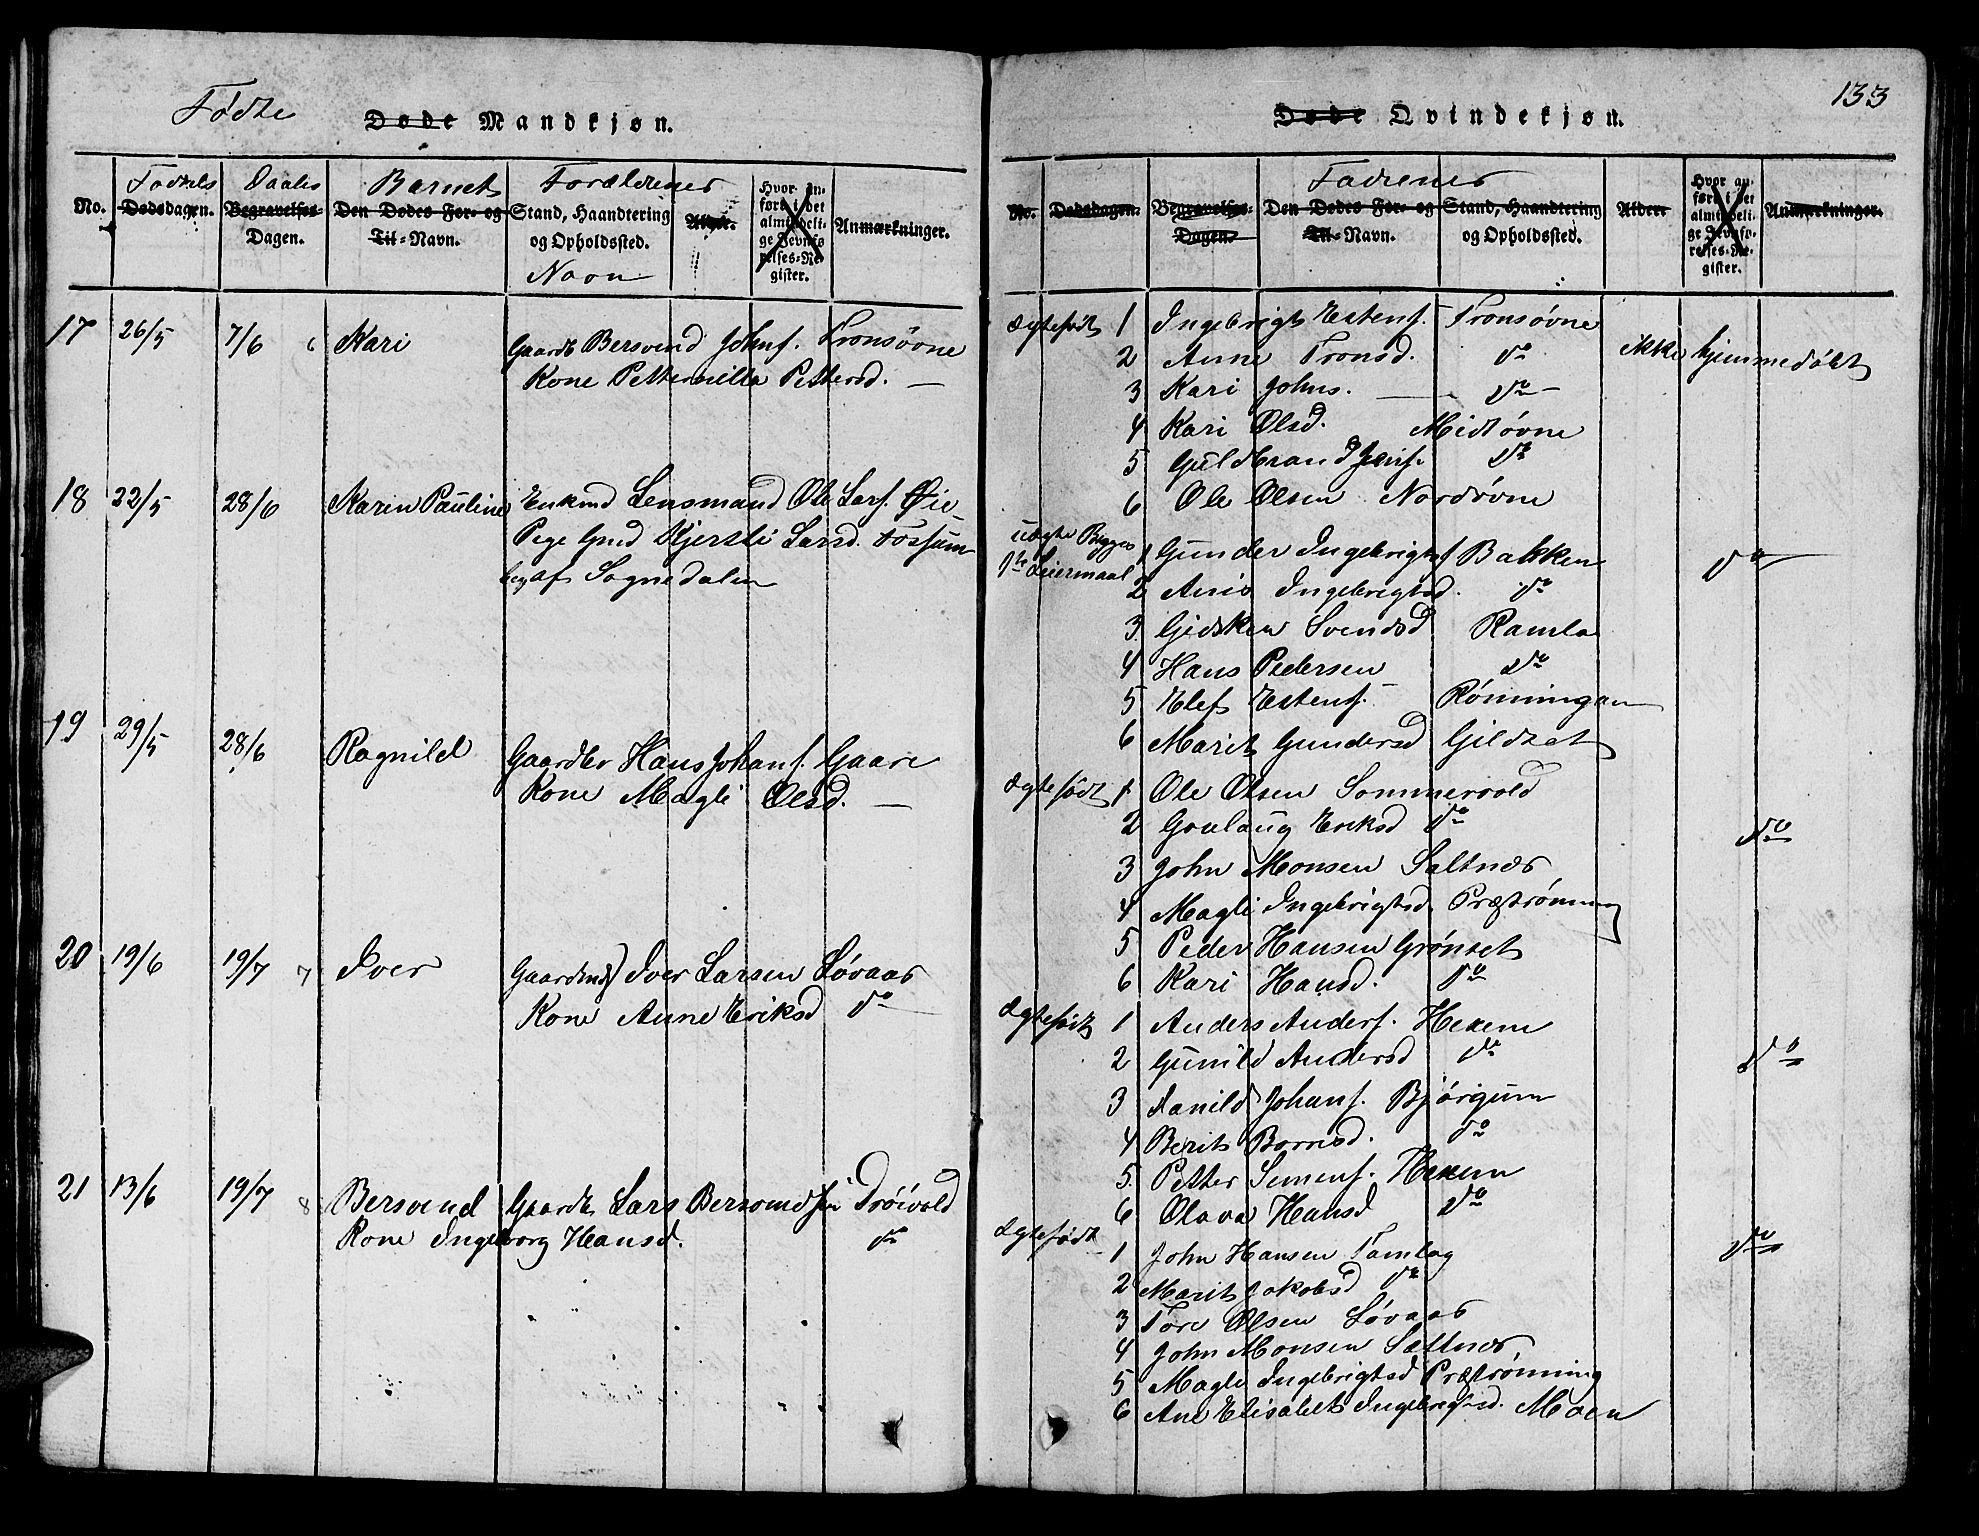 Fødte Døde Mandkjøn.
No. Fødsels Dødsdagen. Daabs Begravelses-Dagen. Barnet Den Dødes For- og Til-Navn. Forældrenes Stand, Haandtering og Opholdssted. Navn Alder. Hvor anført i det almindelige Jevnførelses-Register. Anmærkninger.
17 26/5 7/6 6 Kari Gaardb Bersvend Johns. Tronsøvne
Kone Petternille Pettersd. —
18 22/5 28/6 Karen Pauline Enkmd Lensmand Ole Lars. Øie
Pige Gnid Kjersti Larsd. Fossum
beg af Sognedalen
19 29/5 28/6 Ragnild Gaardbr Hans Johans. Gaare
Kone Magli Olsd. —
20 19/6 19/7 7 Iver Gaardmd Iver Larsen Løvaas
Kone Anne Eriksd do
21 13/6 19/7 8 Bersvend Gaardb Lars Bersvendsen Drøivold
Kone Ingeborg Hansd. do
133
Døde Qvindekjøn.
No. Dødsdagen. Begravelses-Dagen. Den Dødes For- og Til-Navn. Fadrenes Stand, Haandtering og Opholdssted. Alder. Hvor anført i det almindelige Jevnførelses-Register. Anmærkninger.
ægtefødt 1 Ingebrigt Estens. Tronsøvne
2 Anne Tronsd. do ikke hjemmedøbt
3 Kari Johns. — do —
4 Kari Olsd. Midtøvne
5 Guldbrand Jens. do
6 Ole Olsen Nordøvne
uægte Begges
1te Leiermaal 1 Gunder Ingebrigts. Bakken do
2 Anis Ingebrigtsd. do
3 Gidsken Svendsd Ramlo
4 Hans Pedersen do
5 Elef Estens. Rønningan
6 Marit Gundersd Gildset
ægtefødt 1 Ole Olsen Sommervold
2 Gonlaug Eriksd do do
3 John Monsen Saltnes
4 Magli Ingebrigtsd. Præstrønning
5 Peder Hansen Grønset
6 Kari Hansd. do
ægtefødt 1 Anders Anders. Hexem
2 Gunild Andersd do do
3 Tanild Johans. Bjørgum
4 Berit Bornsd. do
5 Petter Simens. Hexem
6 Olava Hansd do
ægtefødt
1 John Hansen Tamlag do
2 Marit Jakobsd do
3 Tore Olsen Løvaas
4 John Monsen Sætnes
5 Magli Ingebrigtsd Præstrønning
6 Ane Elisabet Ingebrigtsd. Moen